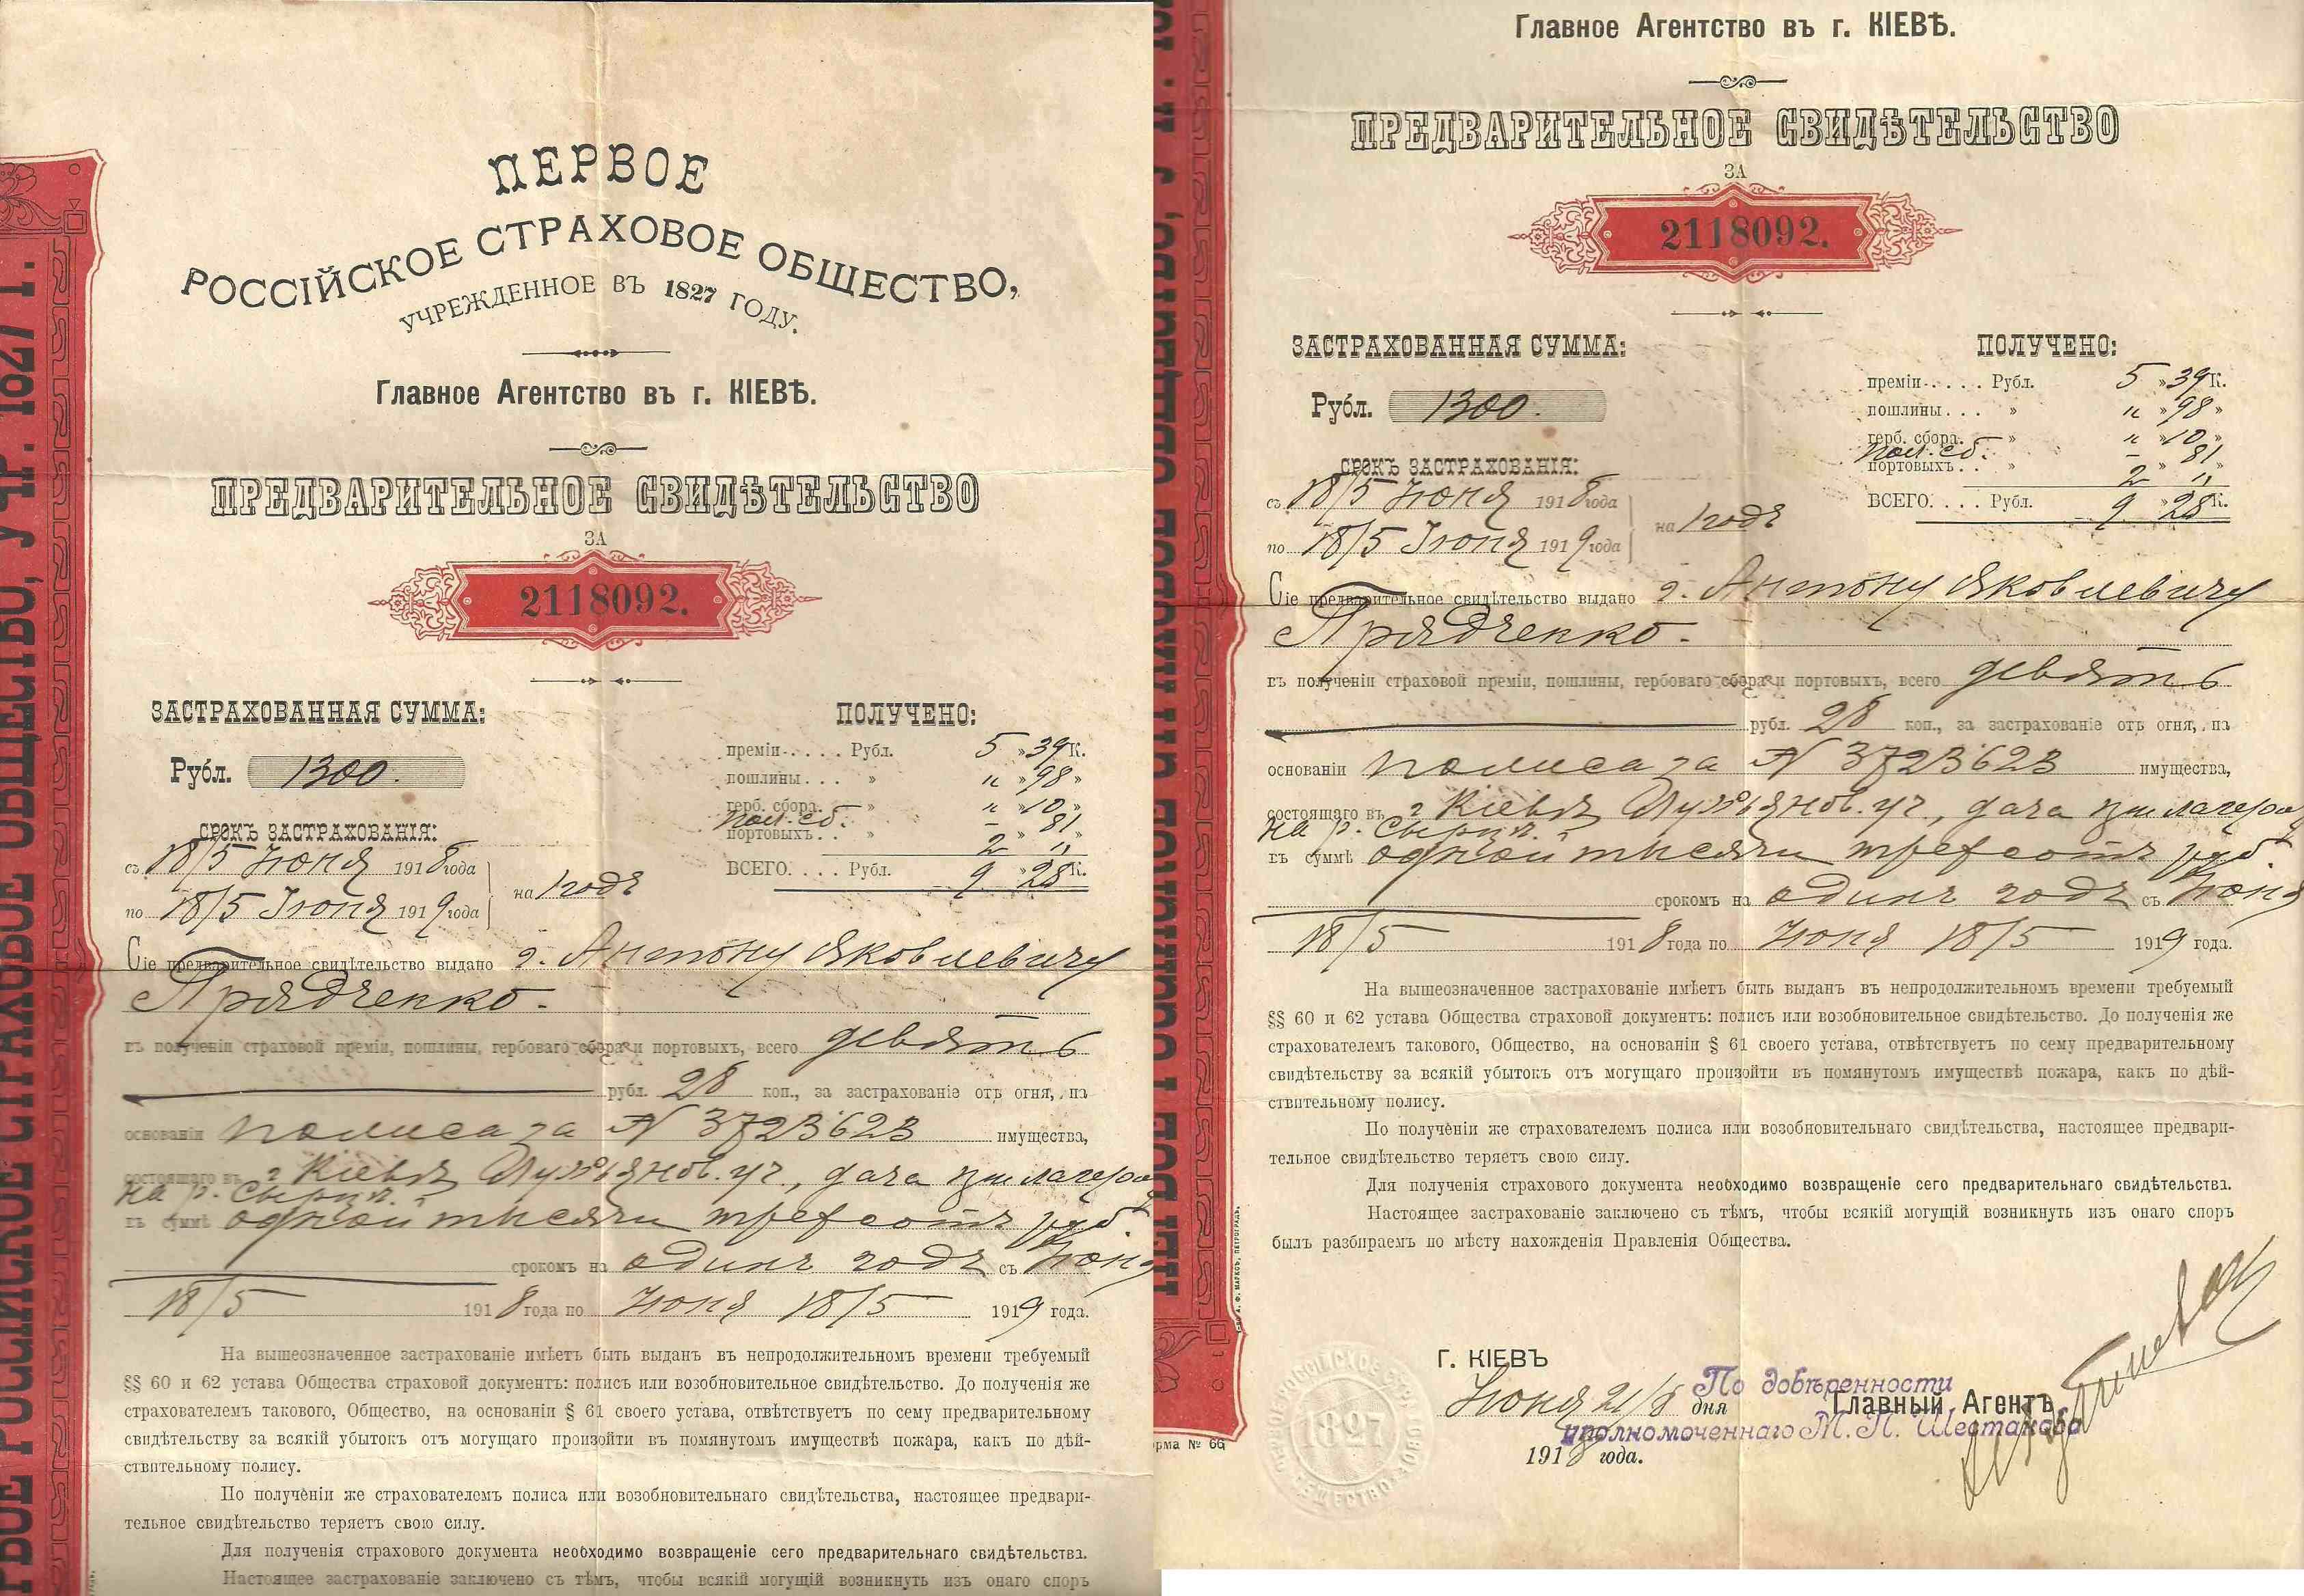 ПЕРВОЕ
РОССІЙСКОЕ СТРАХОВОЕ ОБЩЕСТВО,
УЧРЕЖДЕННОЕ ВЪ 1827 ГОДУ.
Главное Агентство въ г. КІЕВѢ.
ПРЕДВАРИТЕЛЬНОЕ СВИДѢТЕЛЬСТВО
ЗА
2118092.
ЗАСТРАХОВАННАЯ СУММА:
Рубл. 1300.
СРОКЪ ЗАСТРАХОВАНІЯ:
съ 18/5 Іюня 1918 года
по 18/5 Іюня 1919 года
на 1 годъ
ПОЛУЧЕНО:
преміи . . . . . Рубл. 5 » 39 К.
пошлины . . . » " » 98 »
герб. сбора. » " » 10 »
Пол. сб. – 81
портовыхъ . . » 2 » "
ВСЕГО. . . . Рубл. 9 » 28 К.
Сіе предварительное свидѣтельство выдано г. Антону Яковлевичу
Прядченко.
въ полученіи страховой преміи, пошлины, гербоваго сбора и портовыхъ, всего девять
рубл. 28 коп., за застрахованіе отъ огня, на
основаніи полиса за N 3723623 имущества,
состоящаго въ г. Кіевѣ Лукьянов. уч., дача при лагеряхъ
на р. Сырцѣ.
въ суммѣ одной тысячи трехсотъ руб.
срокомъ на одинъ годъ съ Іюня
18/5 1918 года по Іюня 18/5 1919 года.
На вышеозначенное застрахованіе имѣетъ быть выданъ въ непродолжительномъ времени требуемый
§§ 60 и 62 устава Общества страховой документъ: полисъ или возобновительное свидѣтельство. До полученія же
страхователемъ такового, Общество, на основаніи § 61 своего устава, отвѣтствуетъ по сему предварительному
свидѣтельству за всякій убытокъ отъ могущаго произойти въ помянутомъ имуществѣ пожара, какъ по дѣй-
ствительному полису.
По полученіи же страхователемъ полиса или возобновительнаго свидѣтельства, настоящее предвари-
тельное свидѣтельство теряетъ свою силу.
Для полученія страхового документа необходимо возвращеніе сего предварительнаго свидѣтельства.
Настоящее застрахованіе заключено съ тѣмъ, чтобы всякій могущій возникнуть изъ онаго споръ
Главное Агентство въ г. КІЕВѢ.
ПРЕДВАРИТЕЛЬНОЕ СВИДѢТЕЛЬСТВО
ЗА
2118092.
ЗАСТРАХОВАННАЯ СУММА:
Рубл. 1300.
СРОКЪ ЗАСТРАХОВАНІЯ:
съ 18/5 Іюня 1918 года
по 18/5 Іюня 1919 года
на 1 годъ
ПОЛУЧЕНО:
преміи . . . . . Рубл. 5 » 39 К.
пошлины . . . » " » 98 »
герб. сбора. » " » 10 »
Пол. сб. – 81
портовыхъ . . » 2 » "
ВСЕГО. . . . Рубл. 9 » 28 К.
Сіе предварительное свидѣтельство выдано г. Антону Яковлевичу
Прядченко.
въ полученіи страховой преміи, пошлины, гербоваго сбора и портовыхъ, всего девять
рубл. 28 коп., за застрахованіе отъ огня, на
основаніи полиса за N 3723623 имущества,
состоящаго въ г. Кіевѣ Лукьянов. уч., дача при лагеряхъ
на р. Сырцѣ.
въ суммѣ одной тысячи трехсотъ руб.
срокомъ на одинъ годъ съ Іюня
18/5 1918 года по Іюня 18/5 1919 года.
На вышеозначенное застрахованіе имѣетъ быть выданъ въ непродолжительномъ времени требуемый
§§ 60 и 62 устава Общества страховой документъ: полисъ или возобновительное свидѣтельство. До полученія же
страхователемъ такового, Общество, на основаніи § 61 своего устава, отвѣтствуетъ по сему предварительному
свидѣтельству за всякій убытокъ отъ могущаго произойти въ помянутомъ имуществѣ пожара, какъ по дѣй-
ствительному полису.
По полученіи же страхователемъ полиса или возобновительнаго свидѣтельства, настоящее предвари-
тельное свидѣтельство теряетъ свою силу.
Для полученія страхового документа необходимо возвращеніе сего предварительнаго свидѣтельства.
Настоящее застрахованіе заключено съ тѣмъ, чтобы всякій могущій возникнуть изъ онаго споръ
былъ разбираемъ по мѣсту нахожденія Правленія Общества.
Г. КІЕВЪ
Іюня 21/8 дня
1918 года.
По довѣренности
Главный Агентъ
уполномоченнаго М. П. Шестакова
1827